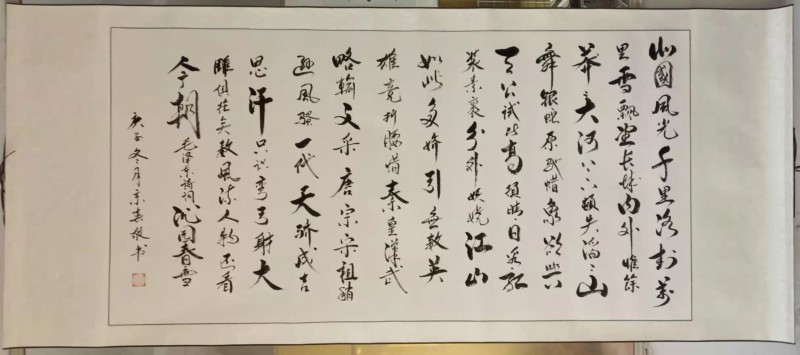 北國風光千里冰封萬
里雪飄望长城内外惟餘
莽〻大河上下頓失滔〻山
舞銀蛇原驰蜡象欲与
天公試比高須晴日看红
装素裹分外妖娆江山
如此多娇引無数英
雄竞折腰惜秦皇漢武
略輸文采唐宗宋祖稍
逊風骚一代天骄成吉
思汗只识弯弓射大
雕俱往矣数風流人物还看
今朝 毛泽东诗词沁園春雪
庚子冬月书